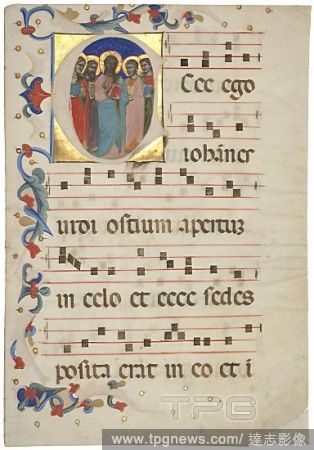 Cce ego
iohãnes
uidi ostium apertuz
in celo et ecce sedes
posita erat in eo et i
TPG
www.tpgnews.com/ 達志影像